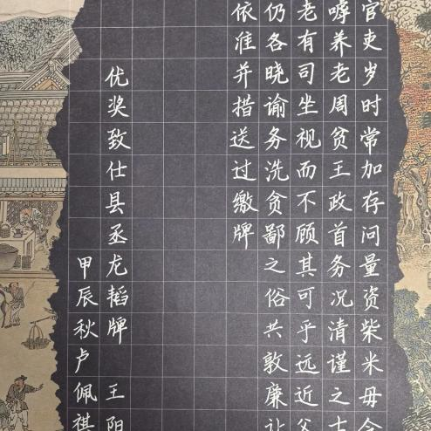 官吏岁时常加存问量资柴米毋令
嘑养老周贫王政首务况清谨之士
老有司坐视而不顾其可乎远近父
仍各晓谕务洗贪鄙之俗共敦廉让
依准并措送过缴牌
优奖致仕县丞龙韬牌 王阳
甲辰秋卢佩祺